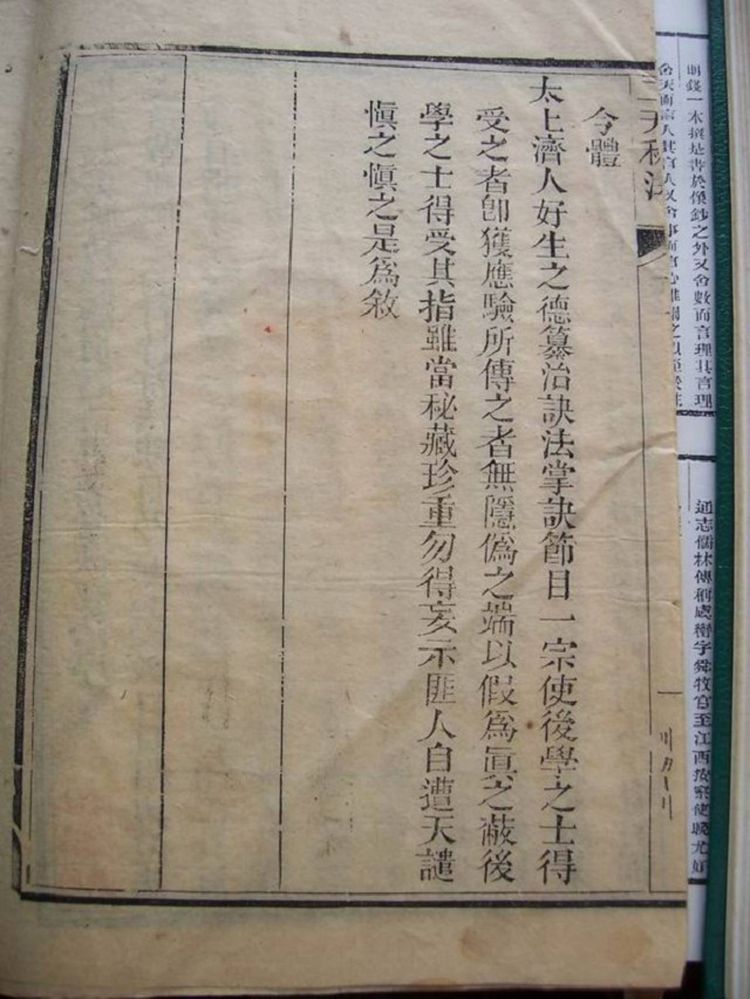 明錢一本撰是書於像鈔之外又舍數而言理其言理
舍天而言人其言人又舍事而言心
通志儒林傳稱
字舜牧官至江西按察使
秘法
今體
太上濟人好生之德纂治訣法掌訣節目一宗使後學之士得
受之者卽獲應驗所傳之者無隱僞之端以假爲眞之蔽後
學之士得受其指雖當秘藏珍重勿得妄示匪人自遭天譴
愼之愼之是爲敘